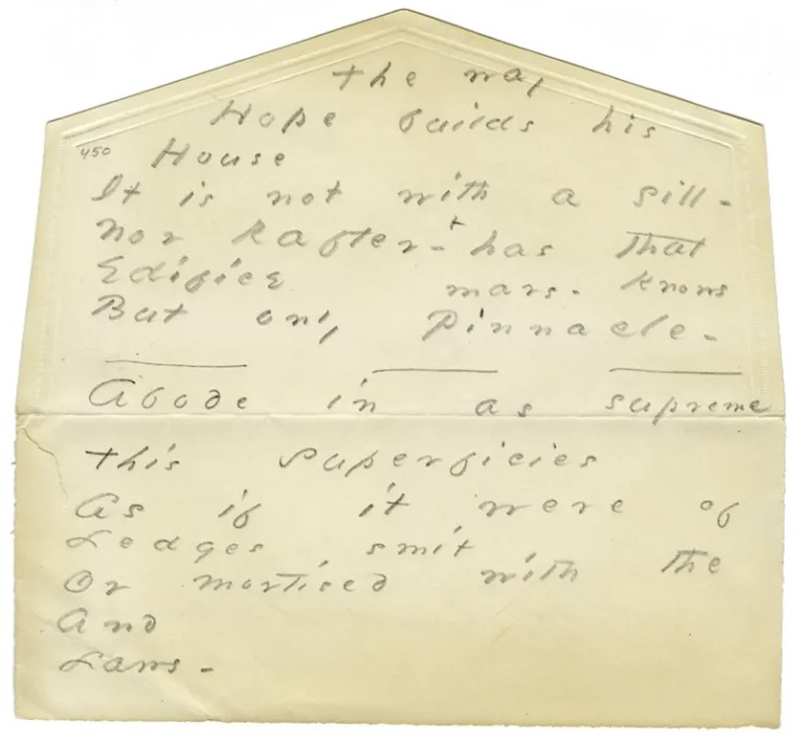 the way
Hope builds his
450 House
It is not with a sill -
Nor Rafter - + has that
Edifice mars. Knows
But only Pinnacle -
Abode in as supreme
This superficies
As if it were of
Ledges smit
Or mortised with the
And
Laws -